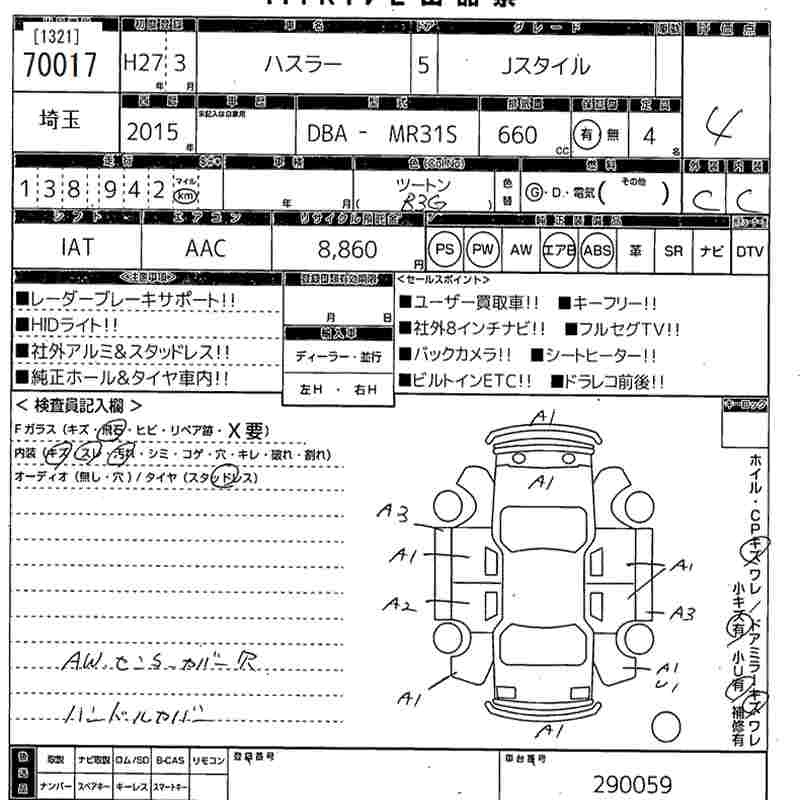 [1321]
70017
埼玉
初度登録
H27 3
年 月
車名
ハスラー
ドア
5
グレード
Jスタイル
評価点
4
2015
年
車歴
未記入は自家用
型式
DBA - MR31S
排気量
660
cc
有 無
定員
4
名
走行
138942
マイル
km
車検
年 月
色(カラーNo)
ツートン
B3G
色替
燃料
G・D・電気( その他 )
外装
C
内装
C
シフト
IAT
エアコン
AAC
リサイクル預託金
8,860
円
PS PW AW エアB ABS 革 SR ナビ DTV
<注意事項>
■レーダーブレーキサポート!!
■HIDライト!!
■社外アルミ&スタッドレス!!
■純正ホール&タイヤ車内!!
月 日
輸入車
ディーラー・並行
左H ・ 右H
<セールスポイント>
■ユーザー買取車!! ■キーフリー!!
■社外8インチナビ!! ■フルセグTV!!
■バックカメラ!! ■シートヒーター!!
■ビルトインETC!! ■ドラレコ前後!!
< 検査員記入欄 >
Fガラス (キズ・飛石・ヒビ・リペア跡・X要)
内装 (キズ・スレ・汚れ・シミ・コゲ・穴・キレ・壊れ・割れ)
オーディオ (無し・穴) / タイヤ (スタッドレス)
AW.センS.カバー穴
ハンドルカバー
A1
A1
A3
A1
A1
A2
A3
A1
A1
U1
A1
ホイル・CPキズワレ/ドアミラーキズワレ
小キズ有 小U有 補修有
取説 ナビ取説 ロム/SD B-CAS リモコン
ナンバー スペアキー キーレス スマートキー
登録番号
車台番号
290059